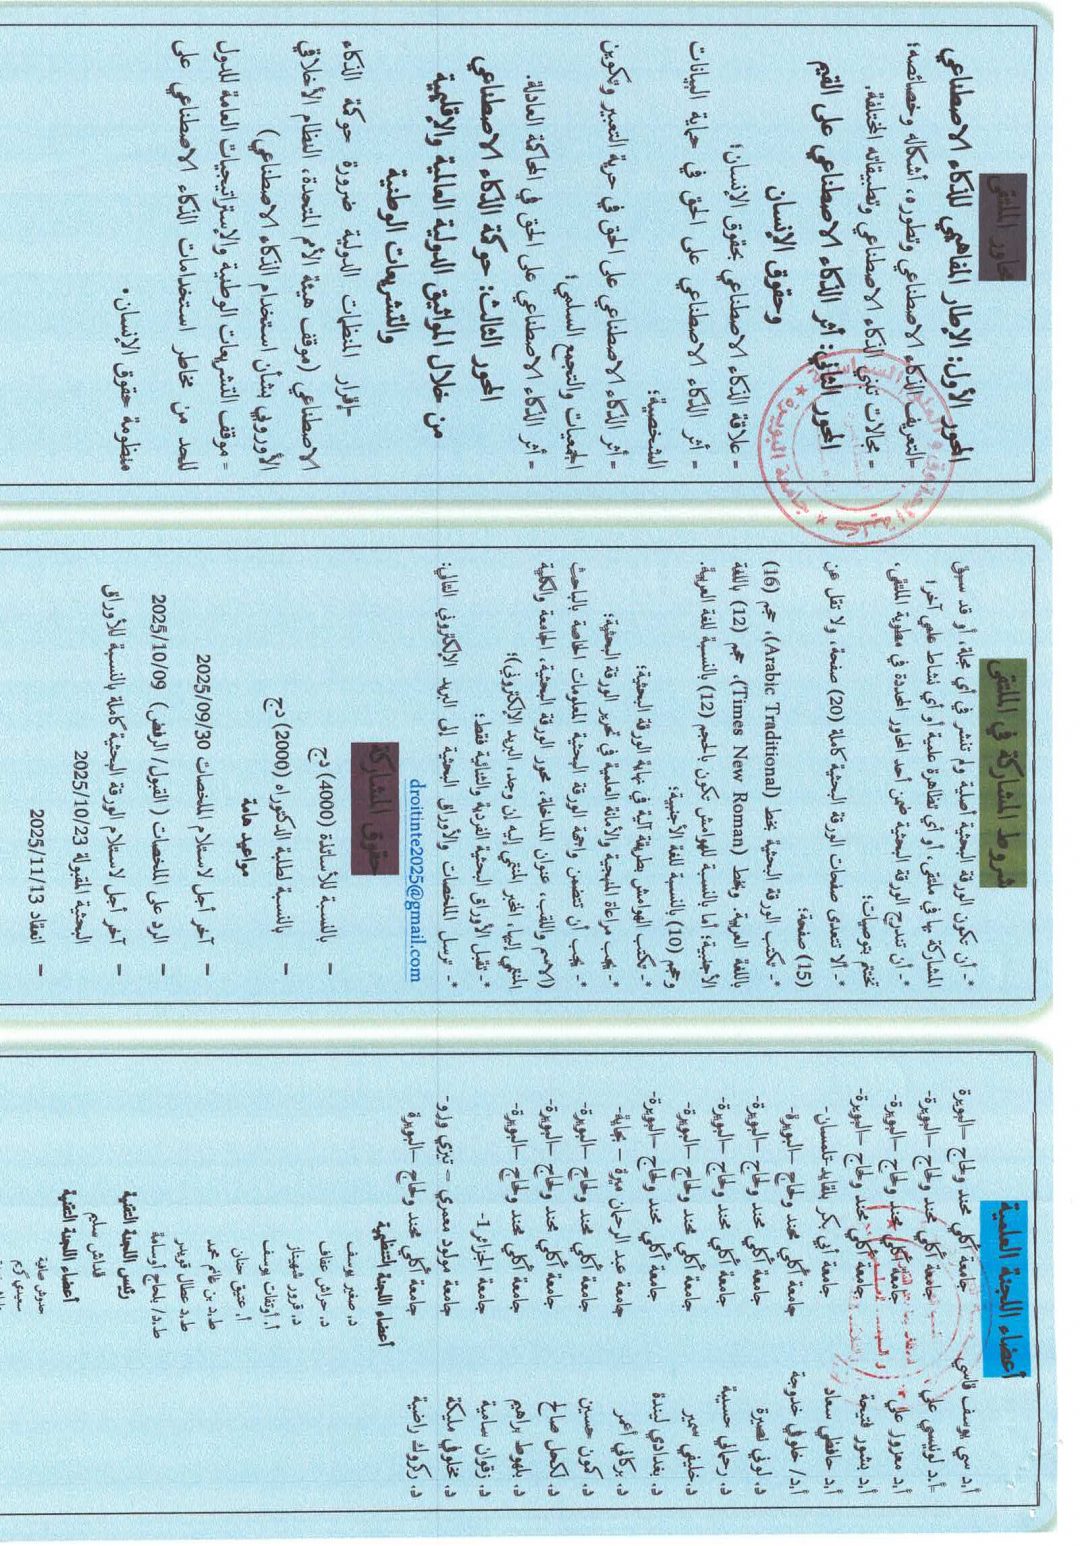 محاور الملتقى
المحور الأول: الإطار المفاهيمي للذكاء الاصطناعي
-التعريف بالذكاء الاصطناعي وتطوره، أشكاله وخصائصه؛
- مجالات تبني الذكاء الاصطناعي وتطبيقاته المختلفة.
المحور الثاني: أثر الذكاء الاصطناعي على القيم
وحقوق الإنسان
- علاقة الذكاء الاصطناعي بحقوق الإنسان؛
- أثر الذكاء الاصطناعي على الحق في حماية البيانات
الشخصية؛
- أثر الذكاء الاصطناعي على الحق في حرية التعبير وتكوين
الجمعيات والتجمع السلمي؛
- أثر الذكاء الاصطناعي على الحق في المحاكمة العادلة.
المحور الثالث: حوكمة الذكاء الاصطناعي
من خلال المواثيق الدولية العالمية والإقليمية
والتشريعات الوطنية
-إقرار المنظمات الدولية ضرورة حوكمة الذكاء
الاصطناعي (موقف هيئة الأمم المتحدة، النظام الأخلاقي
الأوروبي بشأن استخدام الذكاء الاصطناعي)
- موقف التشريعات الوطنية والاستراتيجيات العامة للدول
للحد من مخاطر استخدامات الذكاء الاصطناعي على
منظومة حقوق الإنسان.
شروط المشاركة في الملتقى
*- أن تكون الورقة البحثية أصلية ولم تنشر في أي مجلة، أو قد سبق
المشاركة بها في ملتقى، أو أي تظاهرة علمية أو أي نشاط علمي آخر؛
*- أن تندرج الورقة البحثية ضمن أحد المحاور المحددة في مطوية الملتقى،
تختم بتوصيات؛
*- ألا تتعدى صفحات الورقة البحثية كاملة (20) صفحة، ولا تقل عن
(15) صفحة؛
*- تكتب الورقة البحثية بخط (Arabic Traditional)، حجم (16)
باللغة العربية. وبخط (Times New Roman)، حجم (12) باللغة
الأجنبية؛ أما بالنسبة للهوامش تكون بالحجم (12) بالنسبة للغة العربية.
وحجم (10) بالنسبة للغة الأجنبية؛
*- تكتب الهوامش بطريقة آلية في نهاية الورقة البحثية؛
*- يجب مراعاة المنهجية والأمانة العلمية في تحرير الورقة البحثية؛
*- يجب أن تتضمن واجهة الورقة البحثية المعلومات الخاصة بالباحث
(الاسم واللقب، عنوان المداخلة، محور الورقة البحثية، الجامعة والكلية
المنتمي إليها، المخبر المنتمي إليه إن وجد، البريد الإلكتروني)؛
*- تقبل الأوراق البحثية الفردية والثنائية فقط؛
*- ترسل الملخصات والأوراق البحثية إلى البريد الإلكتروني التالي:
droitinte2025@gmail.com
حقوق المشاركة
- بالنسبة للأساتذة (4000) دج
- بالنسبة لطلبة الدكتوراه (2000) دج
مواعيد هامة
- آخر أجل لاستلام الملخصات 2025/09/30
- الرد على الملخصات ( القبول/ الرفض) 2025/10/09
- آخر أجل لاستلام الورقة البحثية كاملة بالنسبة للأوراق
البحثية المقبولة 2025/10/23
- انعقاد 2025/11/13
أعضاء اللجنة العلمية
أ.د سي يوسف قاسي جامعة أكلي محند ولحاج –البويرة
أ.د لونيسي علي جامعة أكلي محند ولحاج –البويرة-
أ.د معزوز علي جامعة أكلي محند ولحاج –البويرة-
أ.د بشور فتيحة جامعة أكلي محند ولحاج –البويرة-
أ.د حافظي سعاد جامعة أبي بكر بلقايد-تلمسان-
أ.د/ خلوفي خدوجة جامعة أكلي محند ولحاج –البويرة-
د. لوني نصيرة جامعة أكلي محند ولحاج –البويرة-
د. رحماني حسيبة جامعة أكلي محند ولحاج –البويرة-
د. خليفي سمير جامعة أكلي محند ولحاج –البويرة-
د. بغدادي ليندة جامعة أكلي محند ولحاج –البويرة-
د. بركاني أعمر جامعة عبد الرحمان ميرة – بجاية-
د. كمون حسين جامعة أكلي محند ولحاج –البويرة-
د. لكحل صالح جامعة أكلي محند ولحاج –البويرة-
د. بلهوط براهيم جامعة أكلي محند ولحاج –البويرة-
د. زقوان سامية جامعة الجزائر 1-
د. مخلوفي مليكة جامعة مولود معمري – تيزي وزو-
د. ركروك راضية جامعة أكلي محند ولحاج –البويرة
أعضاء اللجنة التنظيمية
د. صغير يوسف
د. حراش عفاف
د. قرور شهيناز
أ. أوتفات يوسف
أ. عتيق حنان
ط.د. بن غانم محمد
ط.د. عطال قويدر
ط.د/ بلحاج أوسامة
رئيس اللجنة التقنية
قداش سليم
أعضاء اللجنة التقنية
حدوش صافية
سعيدي كريم